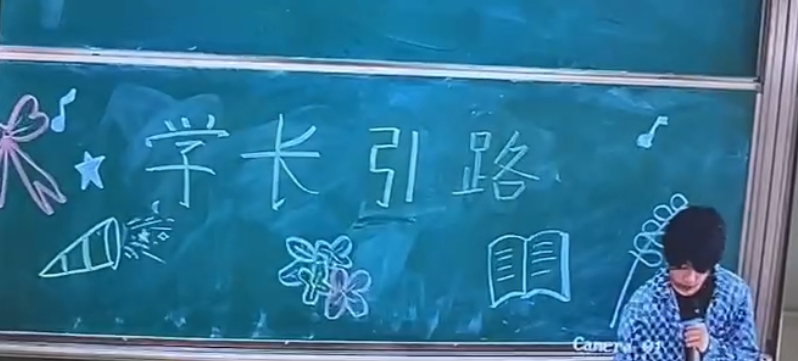 学长引路
Camera 01